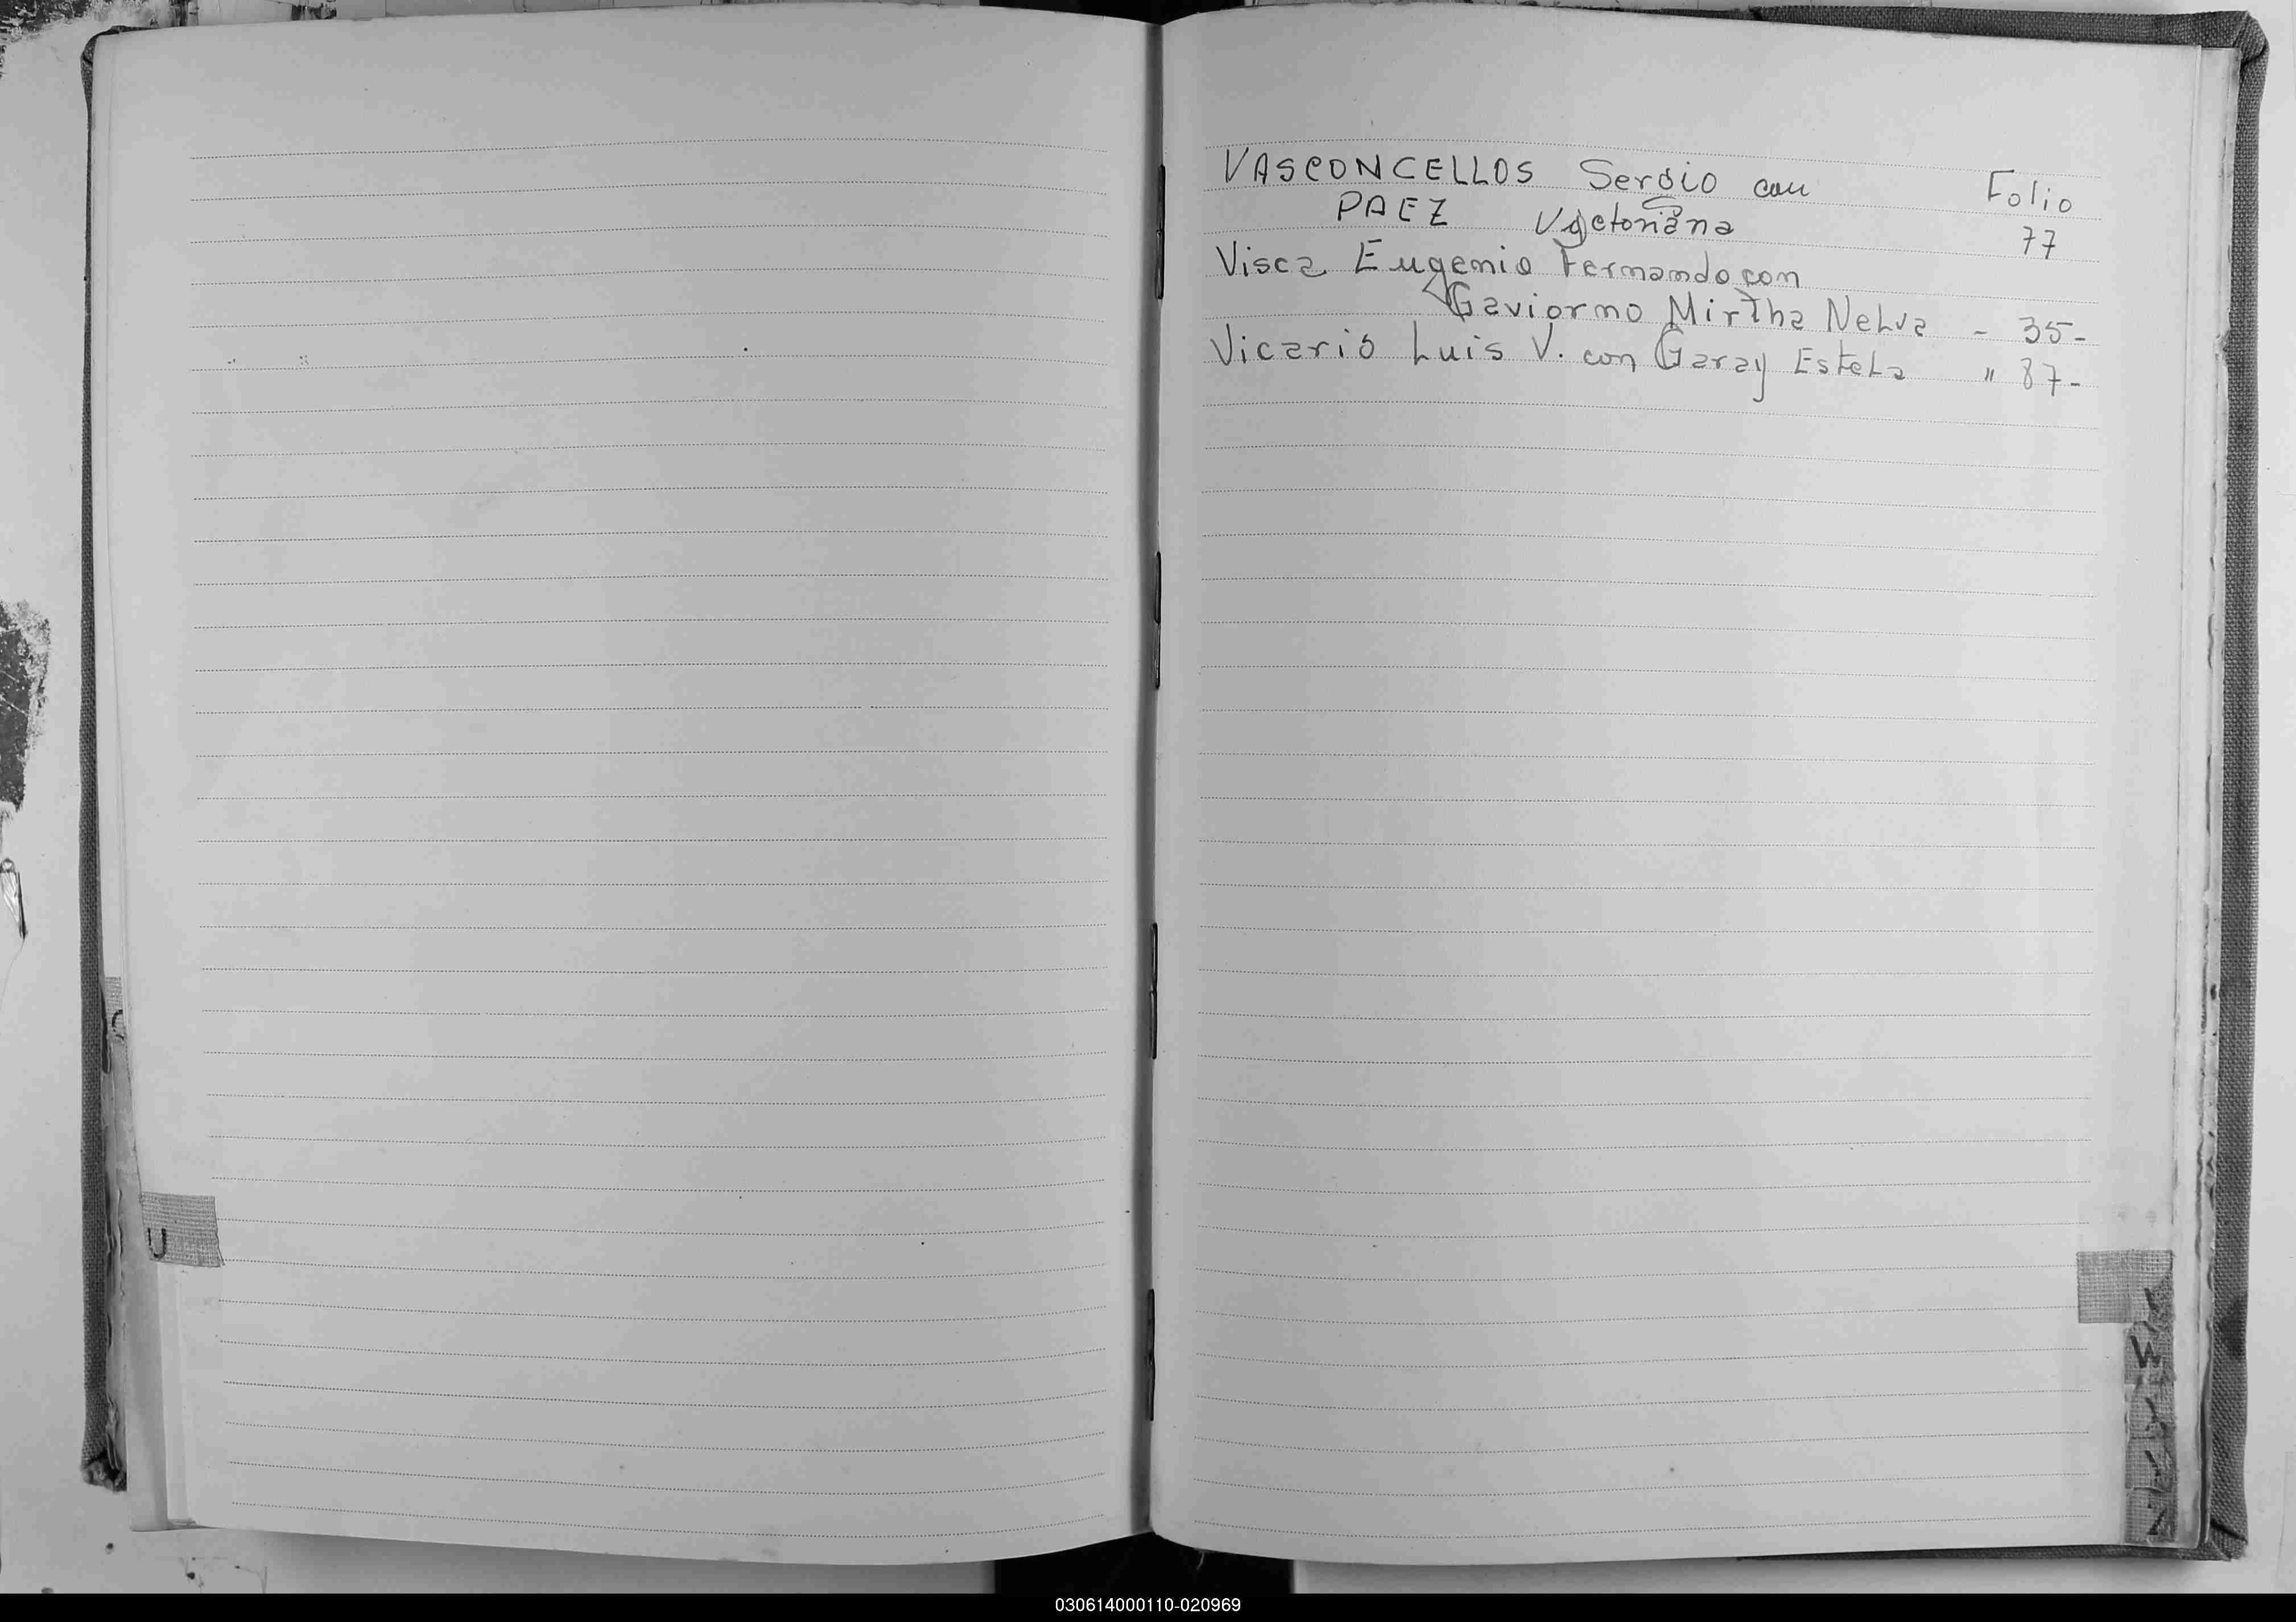 VASCONCELLOS Sergio con Folio
PAEZ Victoriana 77
Visca Eugenio Fernando con
Gaviorno Mirtha Nelva - 35-
Vicario Luis V. con Garay Estela " 87-
U
W
X
Y
Z
030614000110-020969